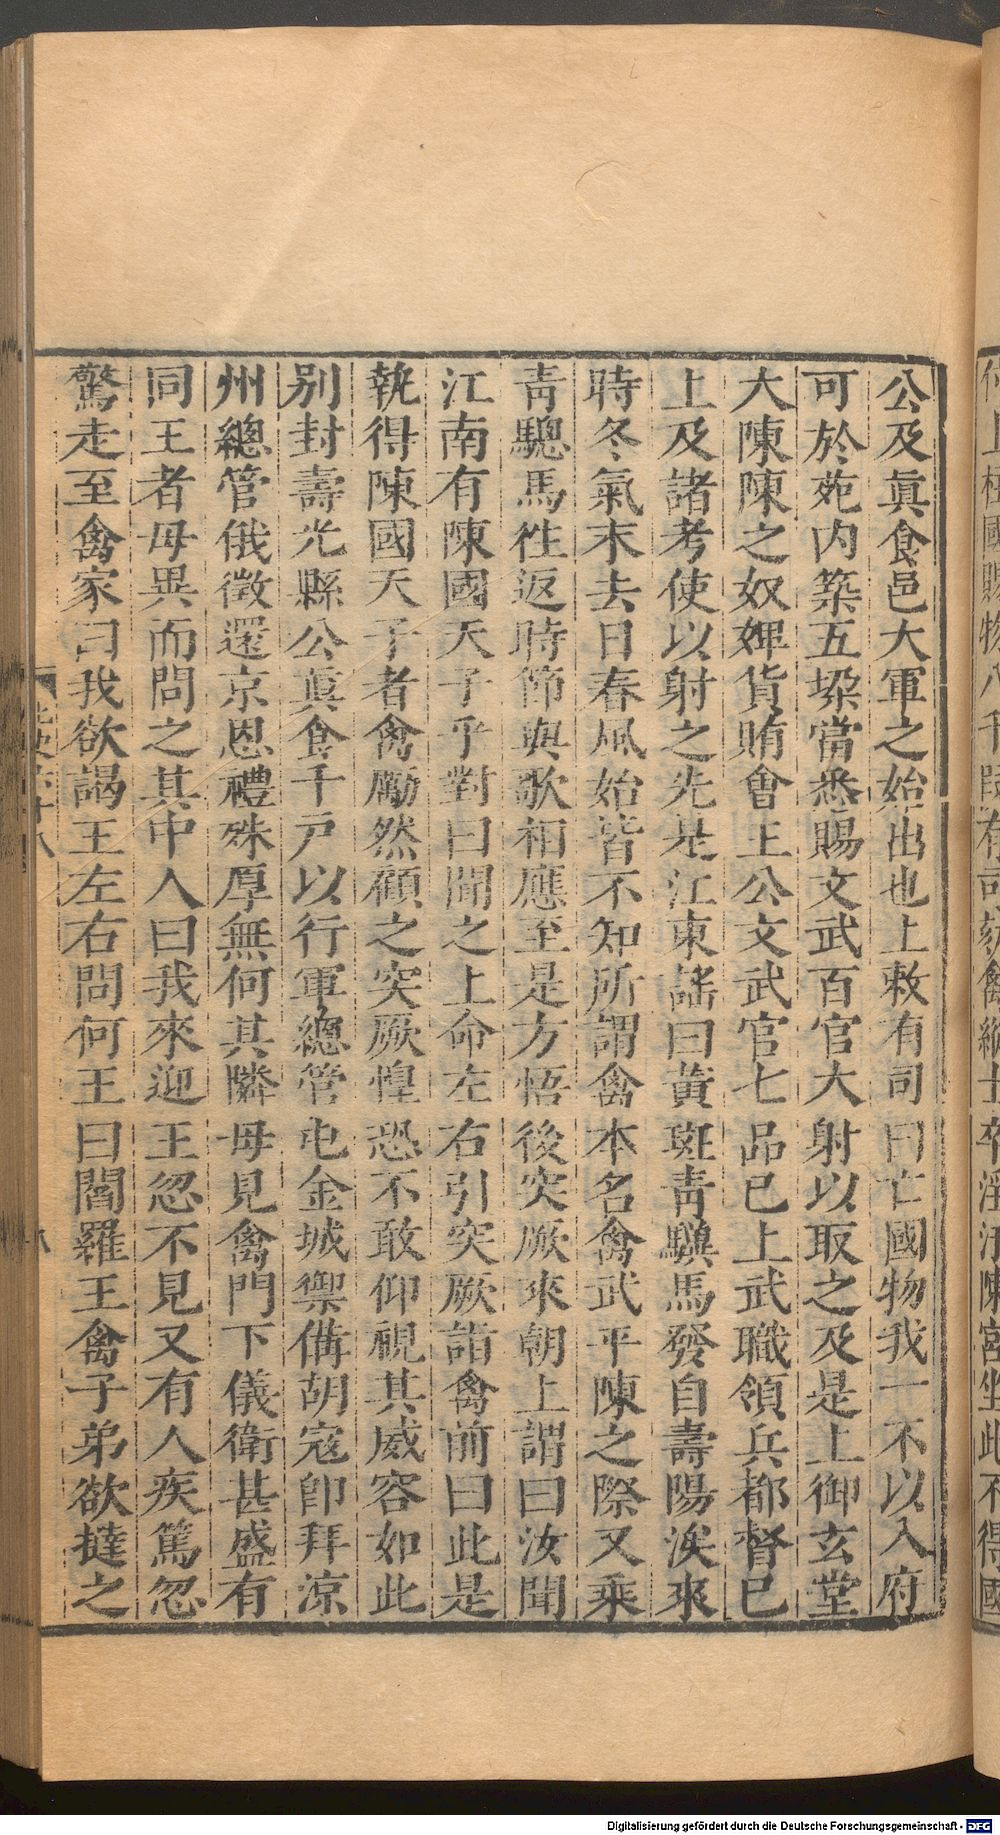 公及眞食邑大軍之始出也上敕有司曰亡國物我一不以入府
可於苑内築五垜當悉賜文武百官大射以取之及是上御玄堂
大陳陳之奴婢貨賄會王公文武官七品已上武職領兵都督已
上及諸考使以射之先是江東謠曰黄斑靑驄馬發自壽陽涘來
時冬氣末去日春風始皆不知所謂禽本名禽武平陳之際又乘
靑驄馬徃返時節與歌相應至是方悟後突厥來朝上謂曰汝聞
江南有陳國天子乎對曰聞之上命左右引突厥詣禽前曰此是
執得陳國天子者禽厲然顧之突厥惶恐不敢仰視其威容如此
别封壽光縣公眞食千戸以行軍總管屯金城禦備胡寇即拜涼
州總管俄徵還京恩禮殊厚無何其隣母見禽門下儀衛甚盛有
同王者母異而問之其中人曰我來迎王忽不見又有人疾篤忽
驚走至禽家曰我欲謁王左右問何王曰閻羅王禽子弟欲撻之
Digitalisierung gefördert durch die Deutsche Forschungsgemeinschaft - DFG